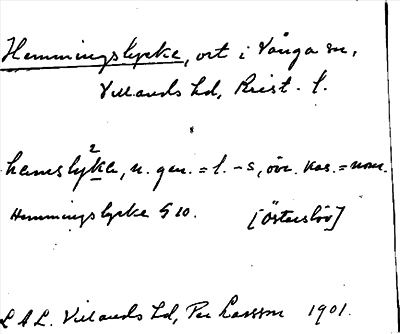 Hemmingslycke, ort i Vånga sn,
Villands hd, Krist. l.
hemslyke, n. gen. = l. -s, övr. kas. = nom.
2
Hemmingslycke G 10. [Österslöv]
L A L. Villands hd, Per Larsson 1901.